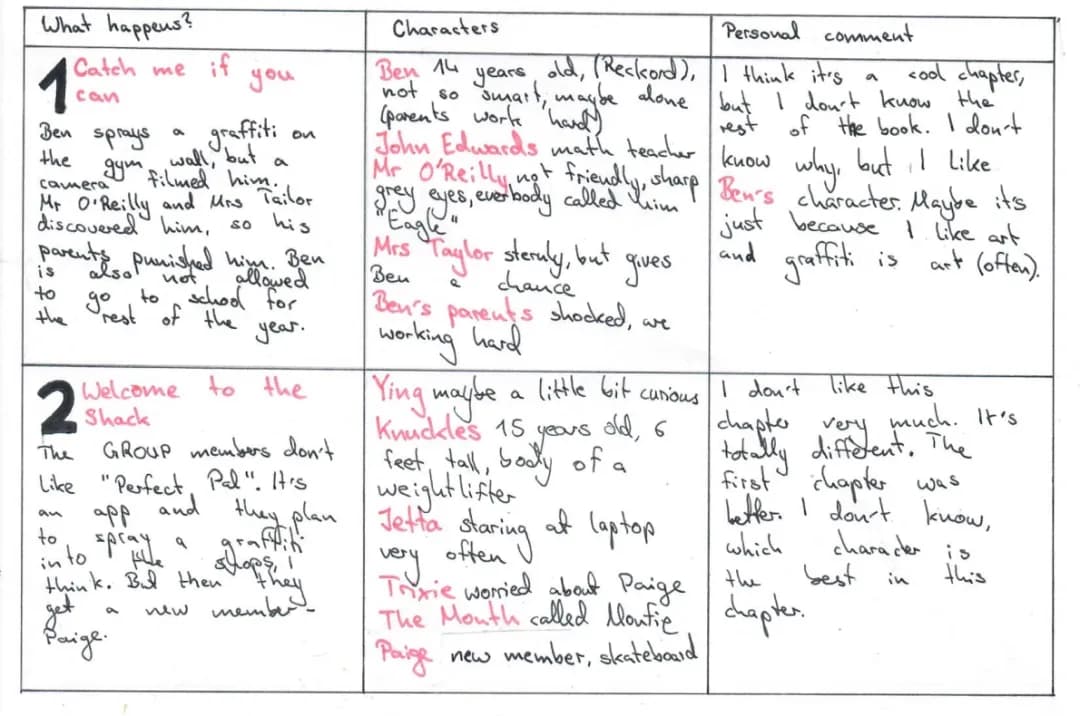 What happens?
Characters
Personal comment
1 Catch me if you
can
Ben sprays a graffiti on
the gym wall, but a
camera filmed him.
Mr O'Reilly and Mrs Tailor
discovered him, so his
parents punished him. Ben
is also not allowed
to go to school for
the rest of the year.
Ben 14 years old, (Reckord),
not so smart, maybe alone
(parents work hard)
John Edwards math teacher
Mr O'Reilly not friendly, sharp
grey eyes, everbody called him
"Eagle"
Mrs Taylor sternly, but gives
Ben a chance
Ben's parents shocked, are
working hard
I think it's a cool chapter,
but I don't know the
rest of the book. I don't
know why, but I like
Ben's character. Maybe it's
just because I like art
and graffiti is art (often).
2 Welcome to the
Shack
The GROUP members don't
like "Perfect Pal". It's
an app and they plan
to spray a graffiti
into the shops, I
think. But then they
get a new member-
Paige.
Ying maybe a little bit curious
Knuckles 15 years old, 6
feet tall, body of a
weightlifter
Jetta staring at laptop
very often
Trixie worried about Paige
The Mouth called Montie
Paige new member, skateboard
I don't like this
chapter very much. It's
totally different. The
first chapter was
better. I don't know,
which character is
the best in this
chapter.